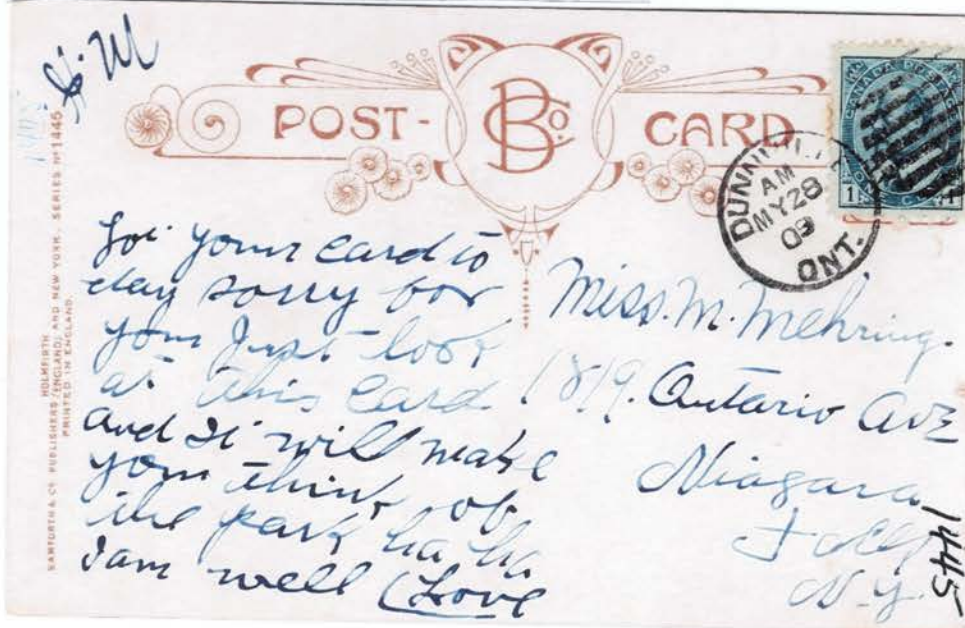 POST-
B Co.
CARD
CANADA POSTAGE
1
1
DUNNVILLE
AM
MY 28
09
ONT.
1445
BAMFORTH & CO PUBLISHERS (ENGLAND) AND NEW YORK. SERIES No 1445
HOLMFIRTH
PRINTED IN ENGLAND.
Got your card to
day sorry for
you Just look
at this card
and It will make
you think of
the park ha ha
I am well (Love
Miss. M. Mehring.
1819. Ontario Ave
Niagara
Falls
N.Y.
1445